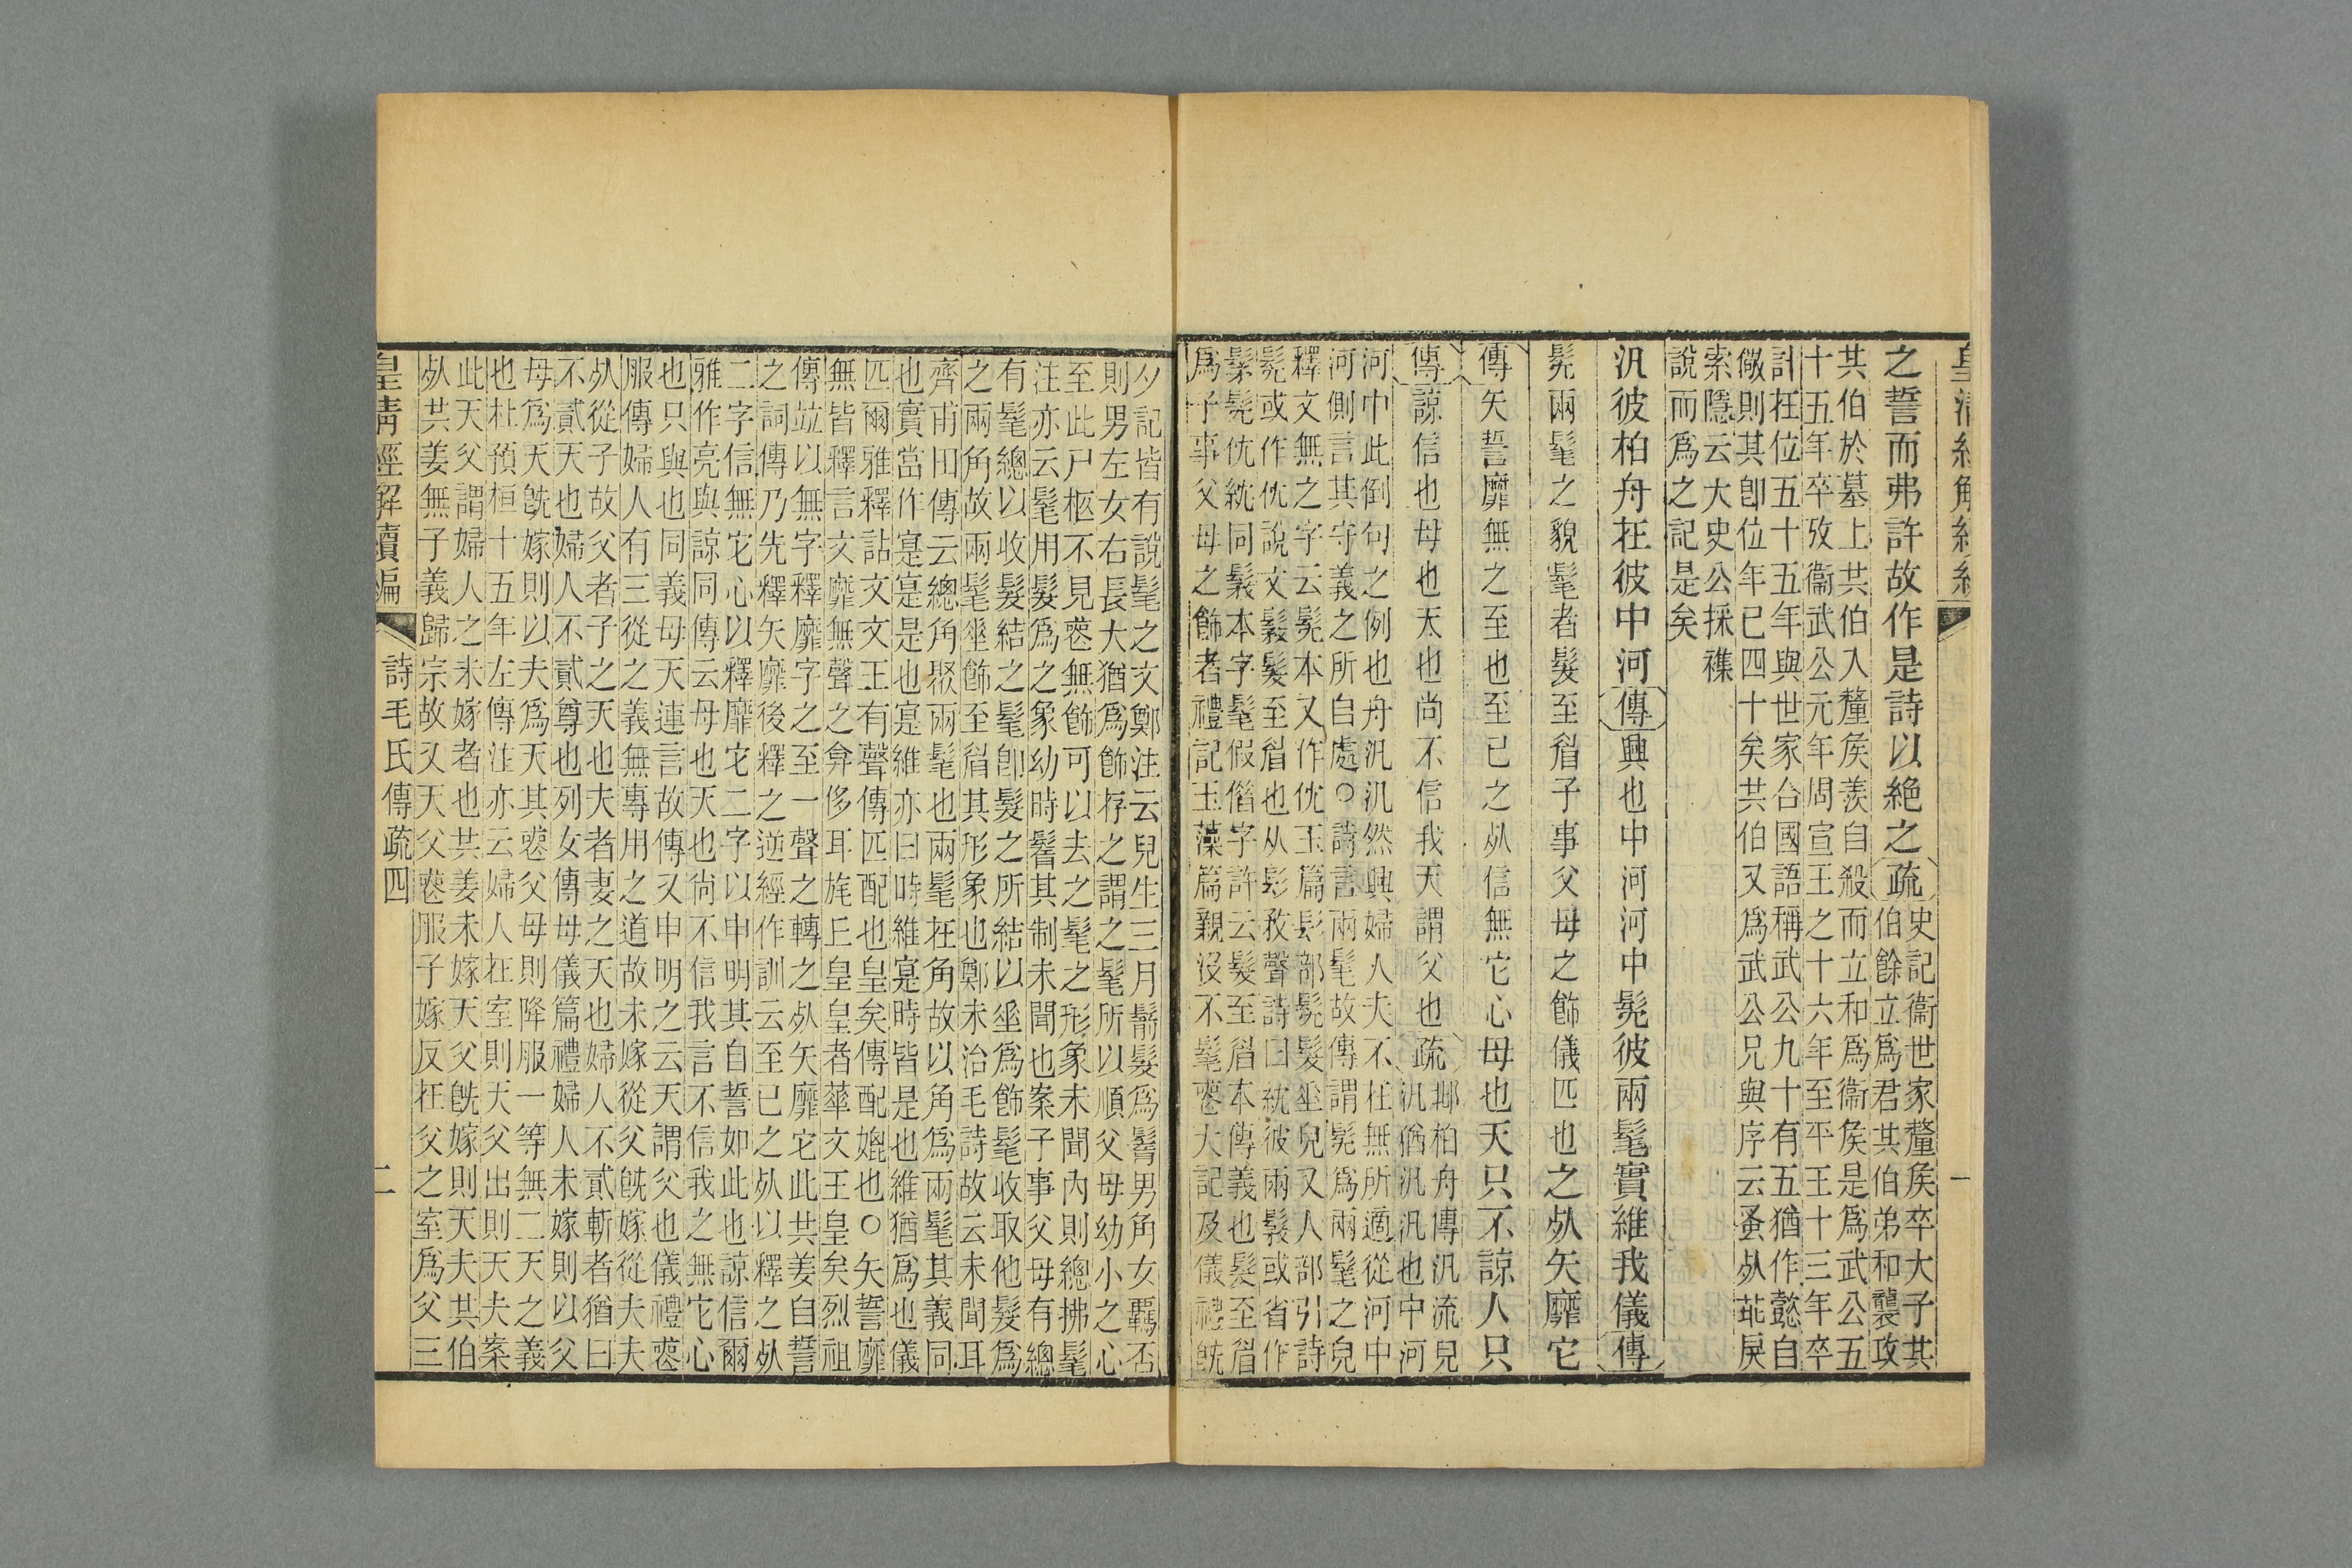 皇清經解續編
一
之誓而弗許故作是詩以絶之疏史記衞世家釐矦卒大子共
伯餘立爲君其伯弟和襲攻
共伯於墓上共伯入釐矦羨自殺而立和爲衞矦是爲武公五
十五年卒攷衞武公元年周宣王之十六年至平王十三年卒
計在位五十五年與世家合國語稱武公九十有五猶作懿自
儆則其卽位年已四十矣共伯又爲武公兄與序云蚤㱙乖戾
索隱云大史公採襍
說而爲之記是矣
汎彼柏舟在彼中河傳興也中河河中髧彼兩髦實維我儀傳
髧兩髦之貌髦者髮至眉子事父母之飾儀匹也之㱙矢靡它
傳矢誓靡無之至也至已之㱙信無它心母也天只不諒人只
傳諒信也母也天也尚不信我天謂父也疏邶柏舟傳汎流皃
汎猶汎汎也中河
河中此倒句之例也舟汎汎然興婦人夫不在無所適從河中
河側言其守義之所自處○詩言兩髦故傳謂髧爲兩髦之皃
釋文無之字云髧本又作优玉篇髟部髧髮垂皃又人部引詩
髧或作优說文䰄髮至眉也从髟敄聲詩曰紞彼兩䰄或省作
髳髧优紞同䰄本字髦假借字許云髮至眉本傳義也髮至眉
爲子事父母之飾者禮記玉藻篇親沒不髦喪大記及儀禮旣
夕記皆有說髦之文鄭注云兒生三月鬋髮爲鬌男角女羈否
則男左女右長大猶爲飾存之謂之髦所以順父母幼小之心
至此尸柩不見喪無飾可以去之髦之形象未聞內則總拂髦
注亦云髦用髮爲之象幼時鬌其制未聞也案子事父母有總
有髦總以收髮結之髦卽髮之所結以垂爲飾髦收取他髮爲
之兩角故兩髦垂飾至眉其形象也鄭未治毛詩故云未聞耳
齊甫田傳云總角聚兩髦也兩髦在角故以角爲兩髦其義同
也實當作寔寔是也寔維亦曰時維寔時皆是也維猶爲也儀
匹爾雅釋詁文文王有聲傳匹配也皇矣傳配媲也○矢誓靡
無皆釋言文靡無聲之弇侈耳旄丘皇皇者華文王皇矣烈祖
傳竝以無字釋靡字之至一聲之轉之㱙矢靡它此共姜自誓
之詞傳乃先釋矢靡後釋之逆經作訓云至已之㱙以釋之㱙
二字信無它心以釋靡它二字以申明其自誓如此也諒信爾
雅作亮與諒同傳云母也天也尚不信我言不信我之無它心
也只與也同義母天連言故傳又申明之云天謂父也儀禮喪
服傳婦人有三從之義無專用之道故未嫁從父旣嫁從夫夫
㱙從子故父者子之天也夫者妻之天也婦人不貳斬者猶曰
不貳天也婦人不貳尊也列女傳母儀篇禮婦人未嫁則以父
母爲天旣嫁則以夫爲天其喪父母則降服一等無二天之義
也杜預桓十五年左傳注亦云婦人在室則天父出則天夫案
此天父謂婦人之未嫁者也共姜未嫁天父旣嫁則天夫其伯
㱙共姜無子義歸宗故又天父喪服子嫁反在父之室爲父三
皇清經解續編
詩毛氏傳疏四
二